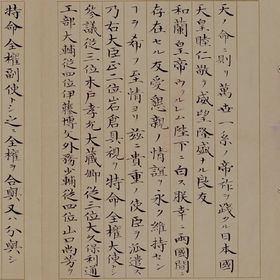 天ノ命ニ則リ萬世一系ノ帝祚ヲ踐タル日本國
天皇睦仁敬テ威望隆盛ナル良友
和蘭皇帝ウルレム陛下ニ白ス朕幸ニ兩國間ニ
存在セル友愛懇親ノ情誼ヲ永ク維持セン
ヿヲ希フノ至情ヨリ茲ニ貴重ノ使臣ヲ派遣ス
乃右大臣正二位岩倉具視ヲ特命全權大使トシ
參議從三位木戸孝允大藏卿從三位大久保利通
工部大輔從四位伊藤博文外務少輔從四位山口尚芳ヲ
特命全權副使トシ之ニ全權ヲ合與又分與シ